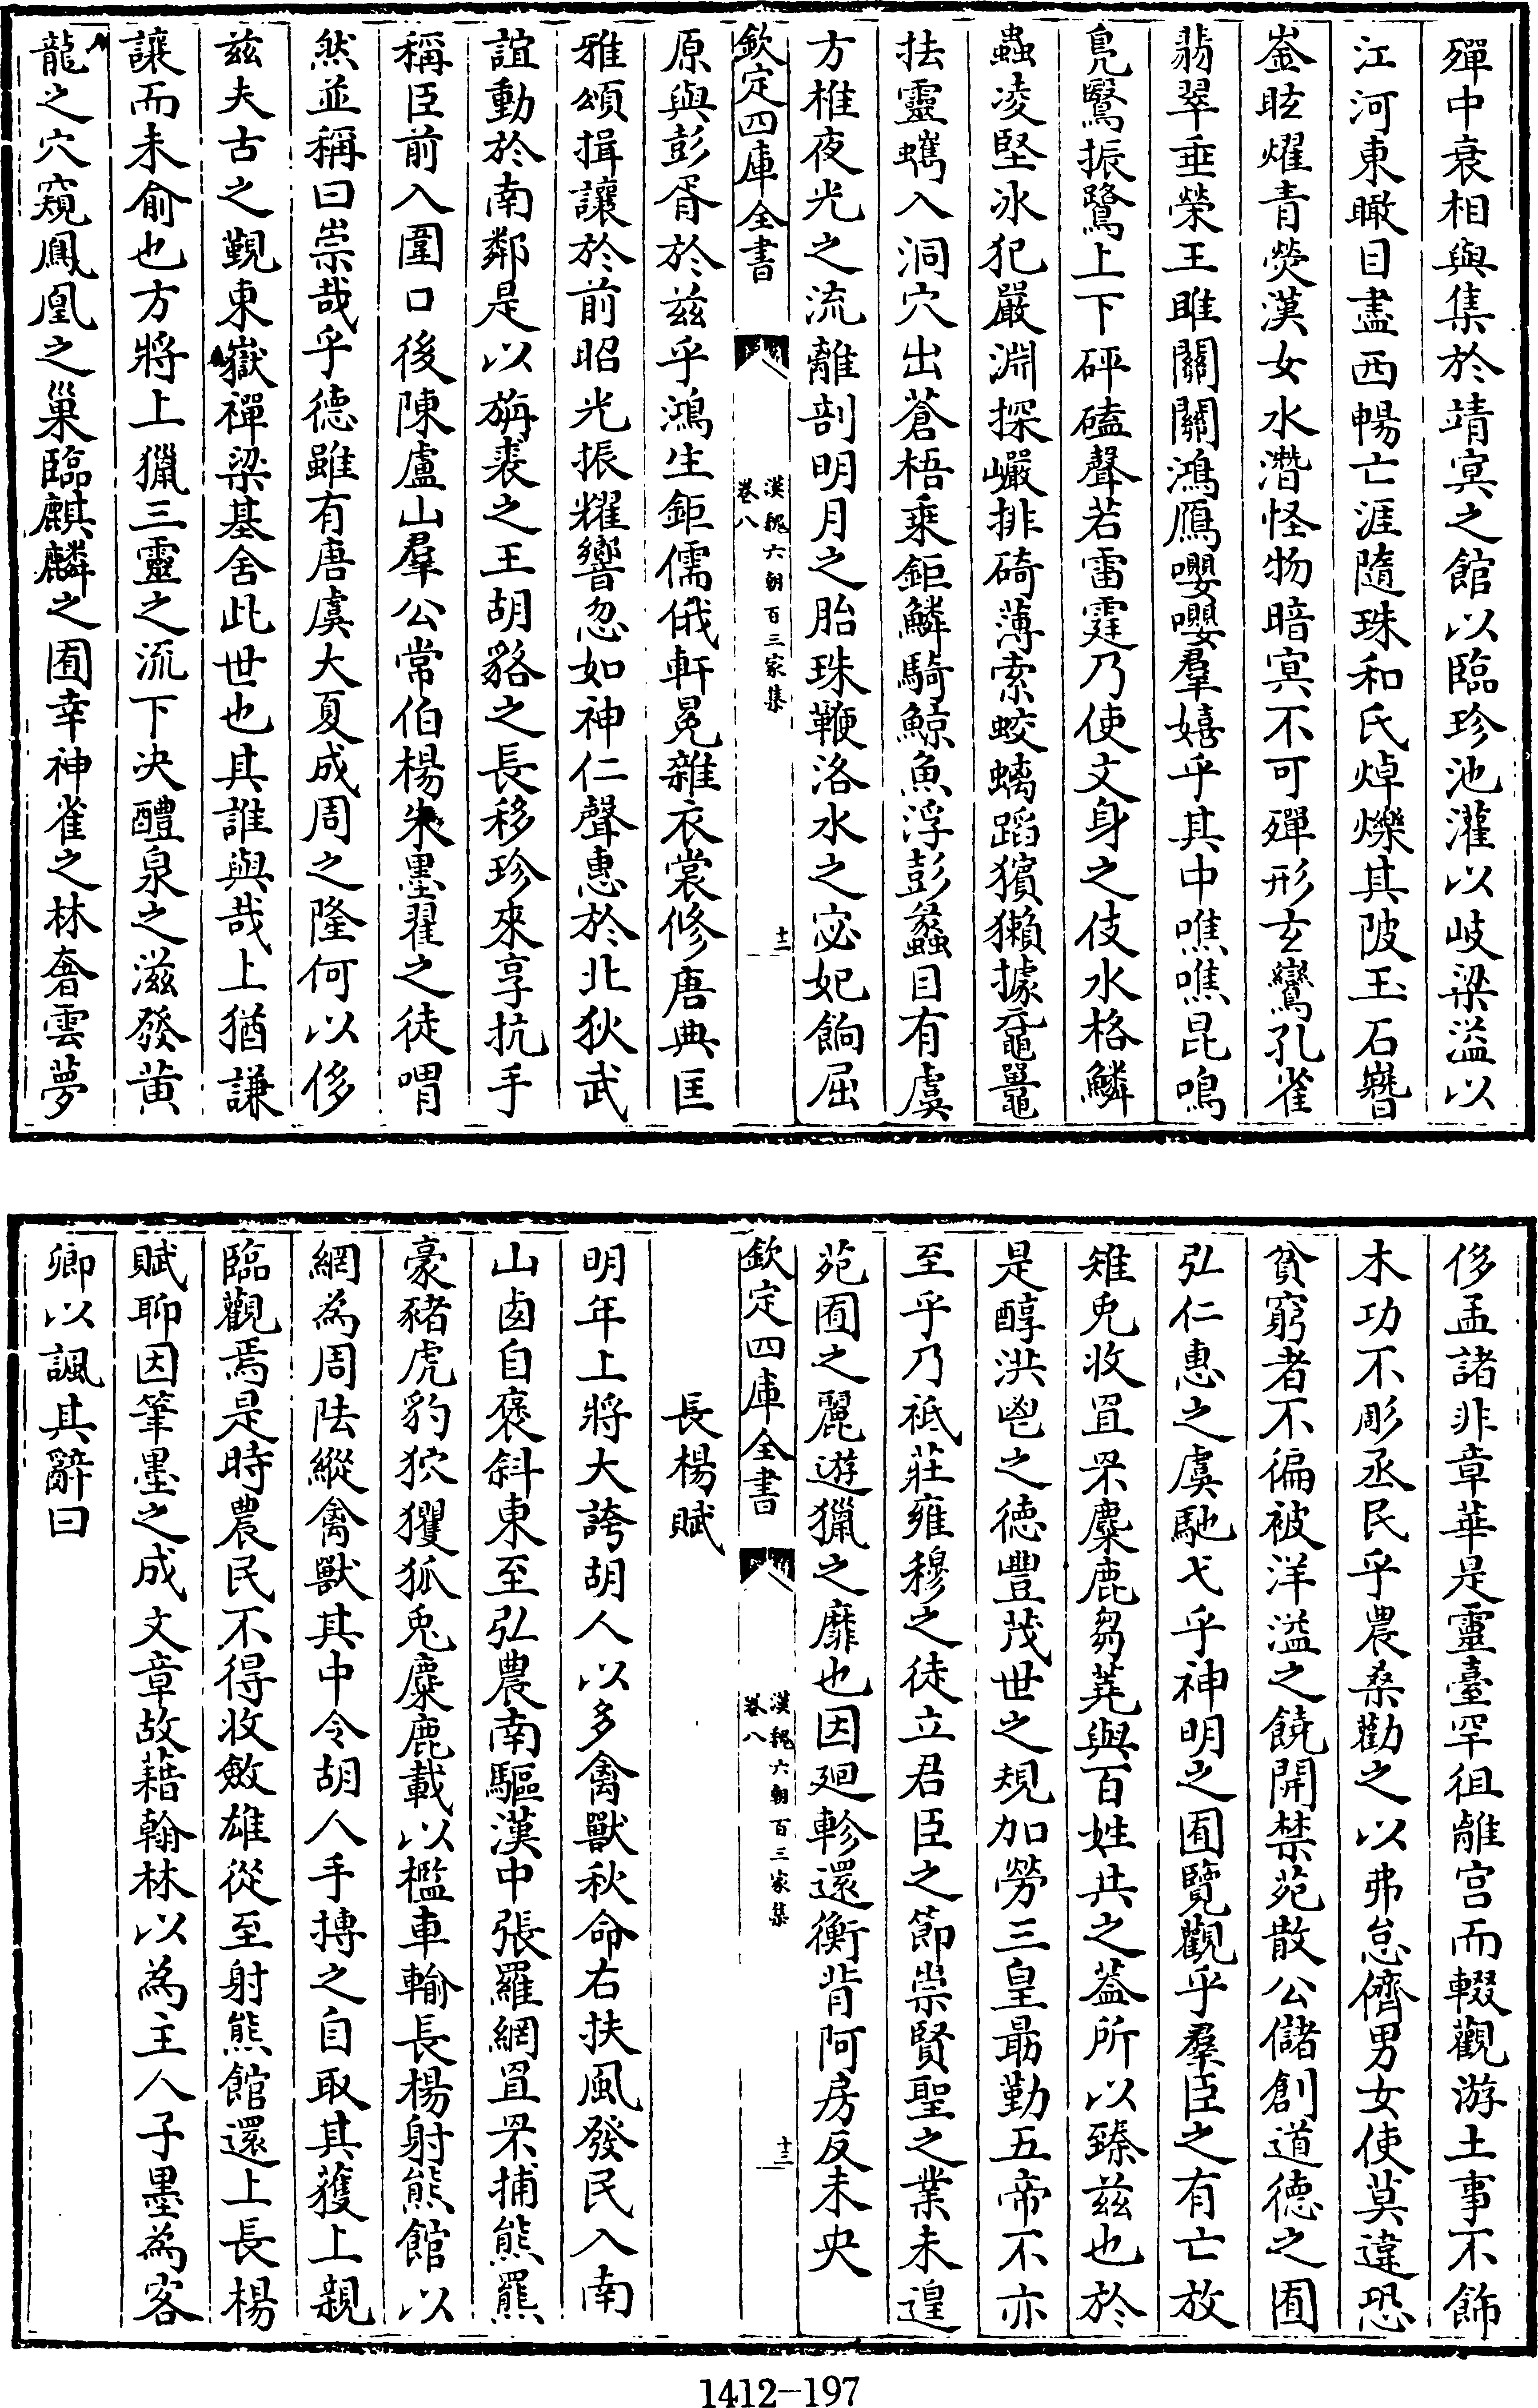 殫中衰相與集於靖㝠之館以臨珍池灌以岐梁溢以
江河東瞰目盡西暢亡涯隨珠和氏焯爍其陂玉石嶜
崟眩燿青熒漢女水潛怪物暗㝠不可殫形玄鸞孔雀
翡翠垂榮王雎關關鴻鴈嚶嚶羣嬉乎其中噍噍昆鳴
鳬鷖振鷺上下砰磕聲若雷霆乃使文身之伎水格鱗
蟲凌堅冰犯嚴淵探巖排碕薄索蛟螭蹈獱獺據黿鼉
抾靈蠵入洞穴出蒼梧乘鉅鱗騎鯨魚浮彭蠡目有虞
方椎夜光之流離剖明月之胎珠鞭洛水之宓妃餉屈
欽定四庫全書
漢魏六朝百三家集
卷八
十二
原與彭胥於兹乎鴻生鉅儒俄軒冕雜衣裳修唐典匡
雅頌揖讓於前昭光振耀響忽如神仁聲惠於北狄武
誼動於南鄰是以旃裘之王胡貉之長移珍來享抗手
稱臣前入圍口後陳盧山羣公常伯楊朱墨翟之徒喟
然並稱曰崇哉乎德雖有唐虞大夏成周之隆何以侈
兹夫古之觐東嶽禪梁基舍此世也其誰與哉上猶謙
讓而未俞也方將上獵三靈之流下决醴泉之滋發黄
龍之穴窺鳳凰之巢臨麒麟之囿幸神雀之林奢雲夢
侈孟諸非章華是靈臺罕徂離宫而輟觀游土事不飾
木功不彫丞民乎農桑勸之以弗怠儕男女使莫違恐
貧窮者不徧被洋溢之饒開禁苑散公儲創道德之囿
弘仁惠之虞馳弋乎神明之囿覽觀乎羣臣之有亡放
雉兎收罝罘麋鹿芻蕘與百姓共之蓋所以臻兹也於
是醇洪鬯之德豐茂世之規加勞三皇勗勤五帝不亦
至乎乃祗莊雍穆之徒立君臣之節崇賢聖之業未遑
苑囿之麗遊獵之靡也因廻軫還衡背阿房反未央
欽定四庫全書
漢魏六朝百三家集
卷八
十三
長楊賦
明年上將大誇胡人以多禽獸秋命右扶風發民入南
山西自褒斜東至弘農南驅漢中張羅網罝罘捕熊羆
豪豬虎豹狖玃狐兎麋鹿載以檻車輸長楊射熊館以
網為周阹縱禽獸其中令胡人手搏之自取其獲上親
臨觀焉是時農民不得收斂雄從至射熊館還上長楊
賦聊因筆墨之成文章故藉翰林以為主人子墨為客
卿以諷其辭曰
1412-197